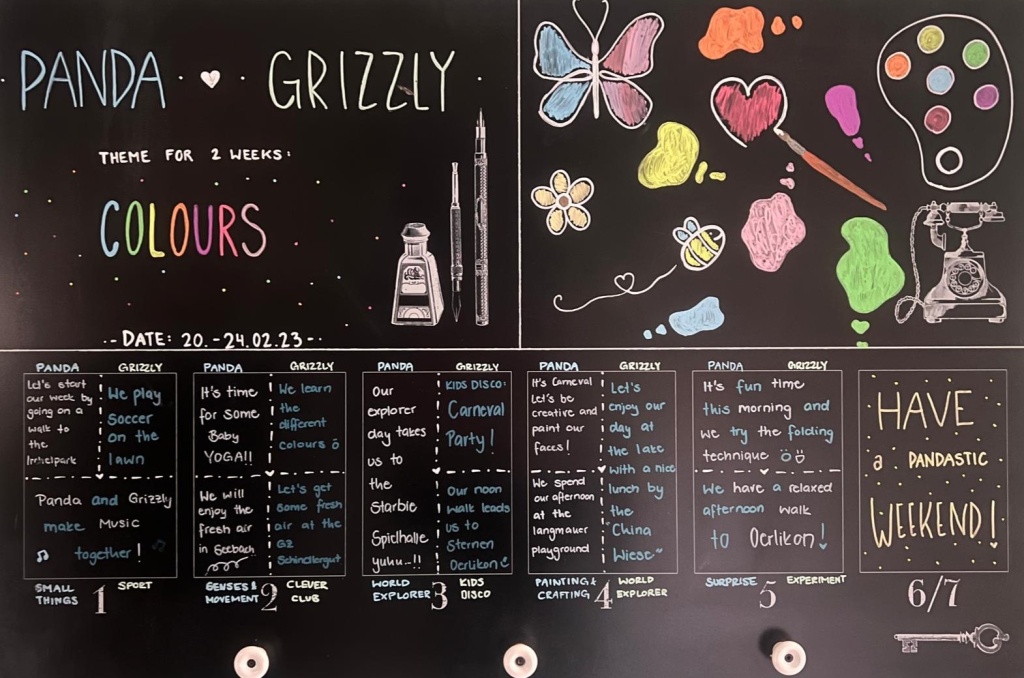 PANDA ♥ GRIZZLY
THEME FOR 2 WEEKS:
COLOURS
DATE: 20.-24.02.23
PANDA
Let's start
our week by
going on a
walk to
the
Irchelpark
GRIZZLY
We play
soccer
on the
lawn
Panda and Grizzly
make Music
together!
SMALL
THINGS
1
SPORT
PANDA
It's time
for some
Baby
YOGA!!
GRIZZLY
We learn
the
different
colours ö
We will
enjoy the
fresh air
in Seebach
Let's get
some fresh
air at the
GZ
Schindlergut
SENSES &
MOVEMENT
2
CLEVER
CLUB
PANDA
Our
explorer
day takes
us to
the
Starbie
Spielhalle
yuhu..!!
GRIZZLY
KIDS DISCO:
Carneval
Party!
Our noon
walk leads
us to
Sternen
Oerlikon
WORLD
EXPLORER
3
KIDS
DISCO
PANDA
It's Carneval
Let's be
creative and
paint our
faces!
We spend
our afternoon
at the
langmauer
playground
GRIZZLY
Let's
enjoy our
day at
the lake
with a nice
lunch by
the
China
Wiese~
PAINTING &
CRAFTING
4
WORLD
EXPLORER
PANDA GRIZZLY
It's fun time
this morning and
we try the folding
technique öü
We have a relaxed
afternoon walk
to Oerlikon!
SURPRISE
5
EXPERIMENT
HAVE
a PANDASTIC
WEEKEND!
6/7